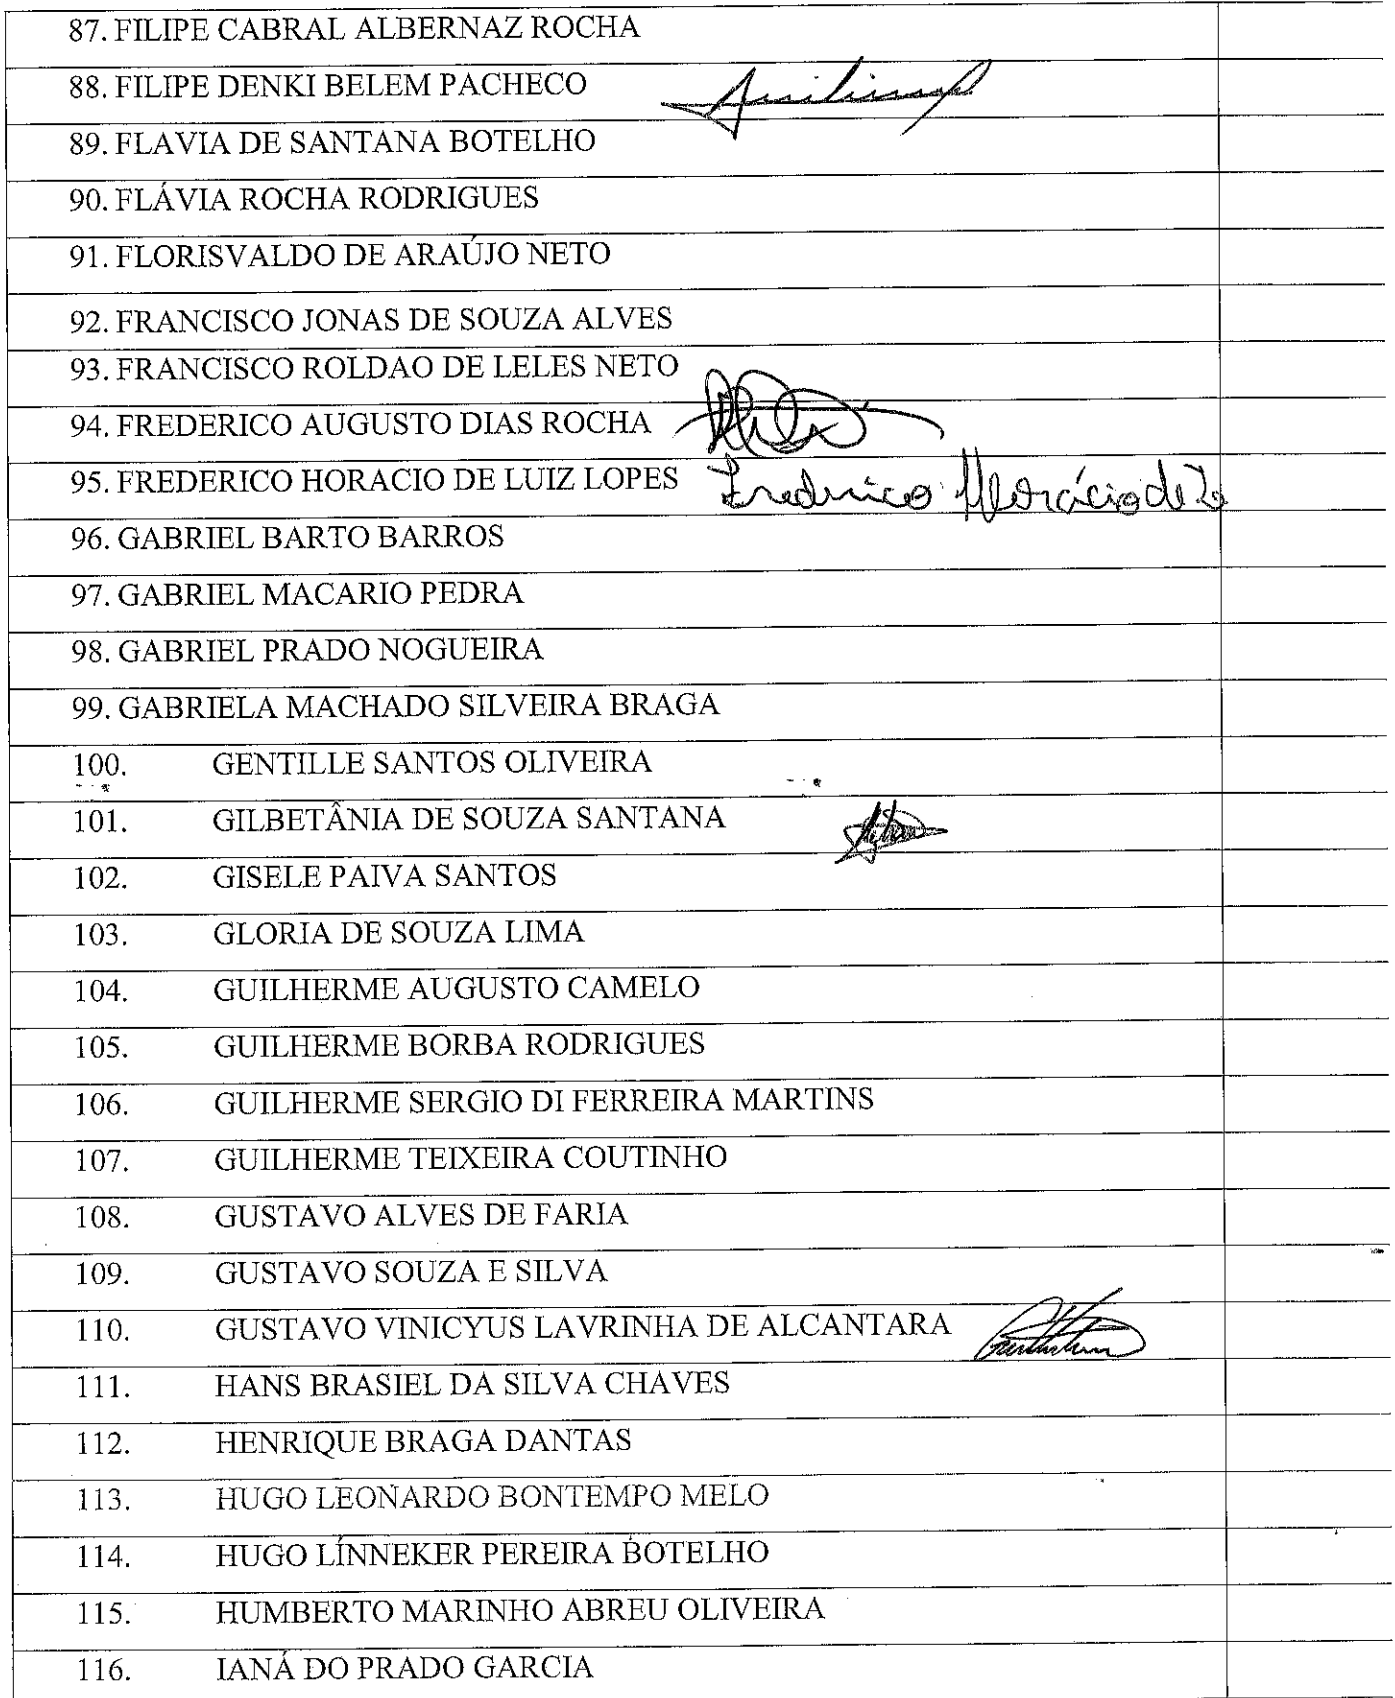 87. FILIPE CABRAL ALBERNAZ ROCHA
88. FILIPE DENKI BELEM PACHECO
89. FLAVIA DE SANTANA BOTELHO
90. FLÁVIA ROCHA RODRIGUES
91. FLORISVALDO DE ARAÚJO NETO
92. FRANCISCO JONAS DE SOUZA ALVES
93. FRANCISCO ROLDAO DE LELES NETO
94. FREDERICO AUGUSTO DIAS ROCHA
95. FREDERICO HORACIO DE LUIZ LOPES Frederico Horácio de
96. GABRIEL BARTO BARROS
97. GABRIEL MACARIO PEDRA
98. GABRIEL PRADO NOGUEIRA
99. GABRIELA MACHADO SILVEIRA BRAGA
100. GENTILLE SANTOS OLIVEIRA
101. GILBETÂNIA DE SOUZA SANTANA
102. GISELE PAIVA SANTOS
103. GLORIA DE SOUZA LIMA
104. GUILHERME AUGUSTO CAMELO
105. GUILHERME BORBA RODRIGUES
106. GUILHERME SERGIO DI FERREIRA MARTINS
107. GUILHERME TEIXEIRA COUTINHO
108. GUSTAVO ALVES DE FARIA
109. GUSTAVO SOUZA E SILVA
110. GUSTAVO VINICYUS LAVRINHA DE ALCANTARA
111. HANS BRASIEL DA SILVA CHAVES
112. HENRIQUE BRAGA DANTAS
113. HUGO LEONARDO BONTEMPO MELO
114. HUGO LÍNNEKER PEREIRA BOTELHO
115. HUMBERTO MARINHO ABREU OLIVEIRA
116. IANÁ DO PRADO GARCIA